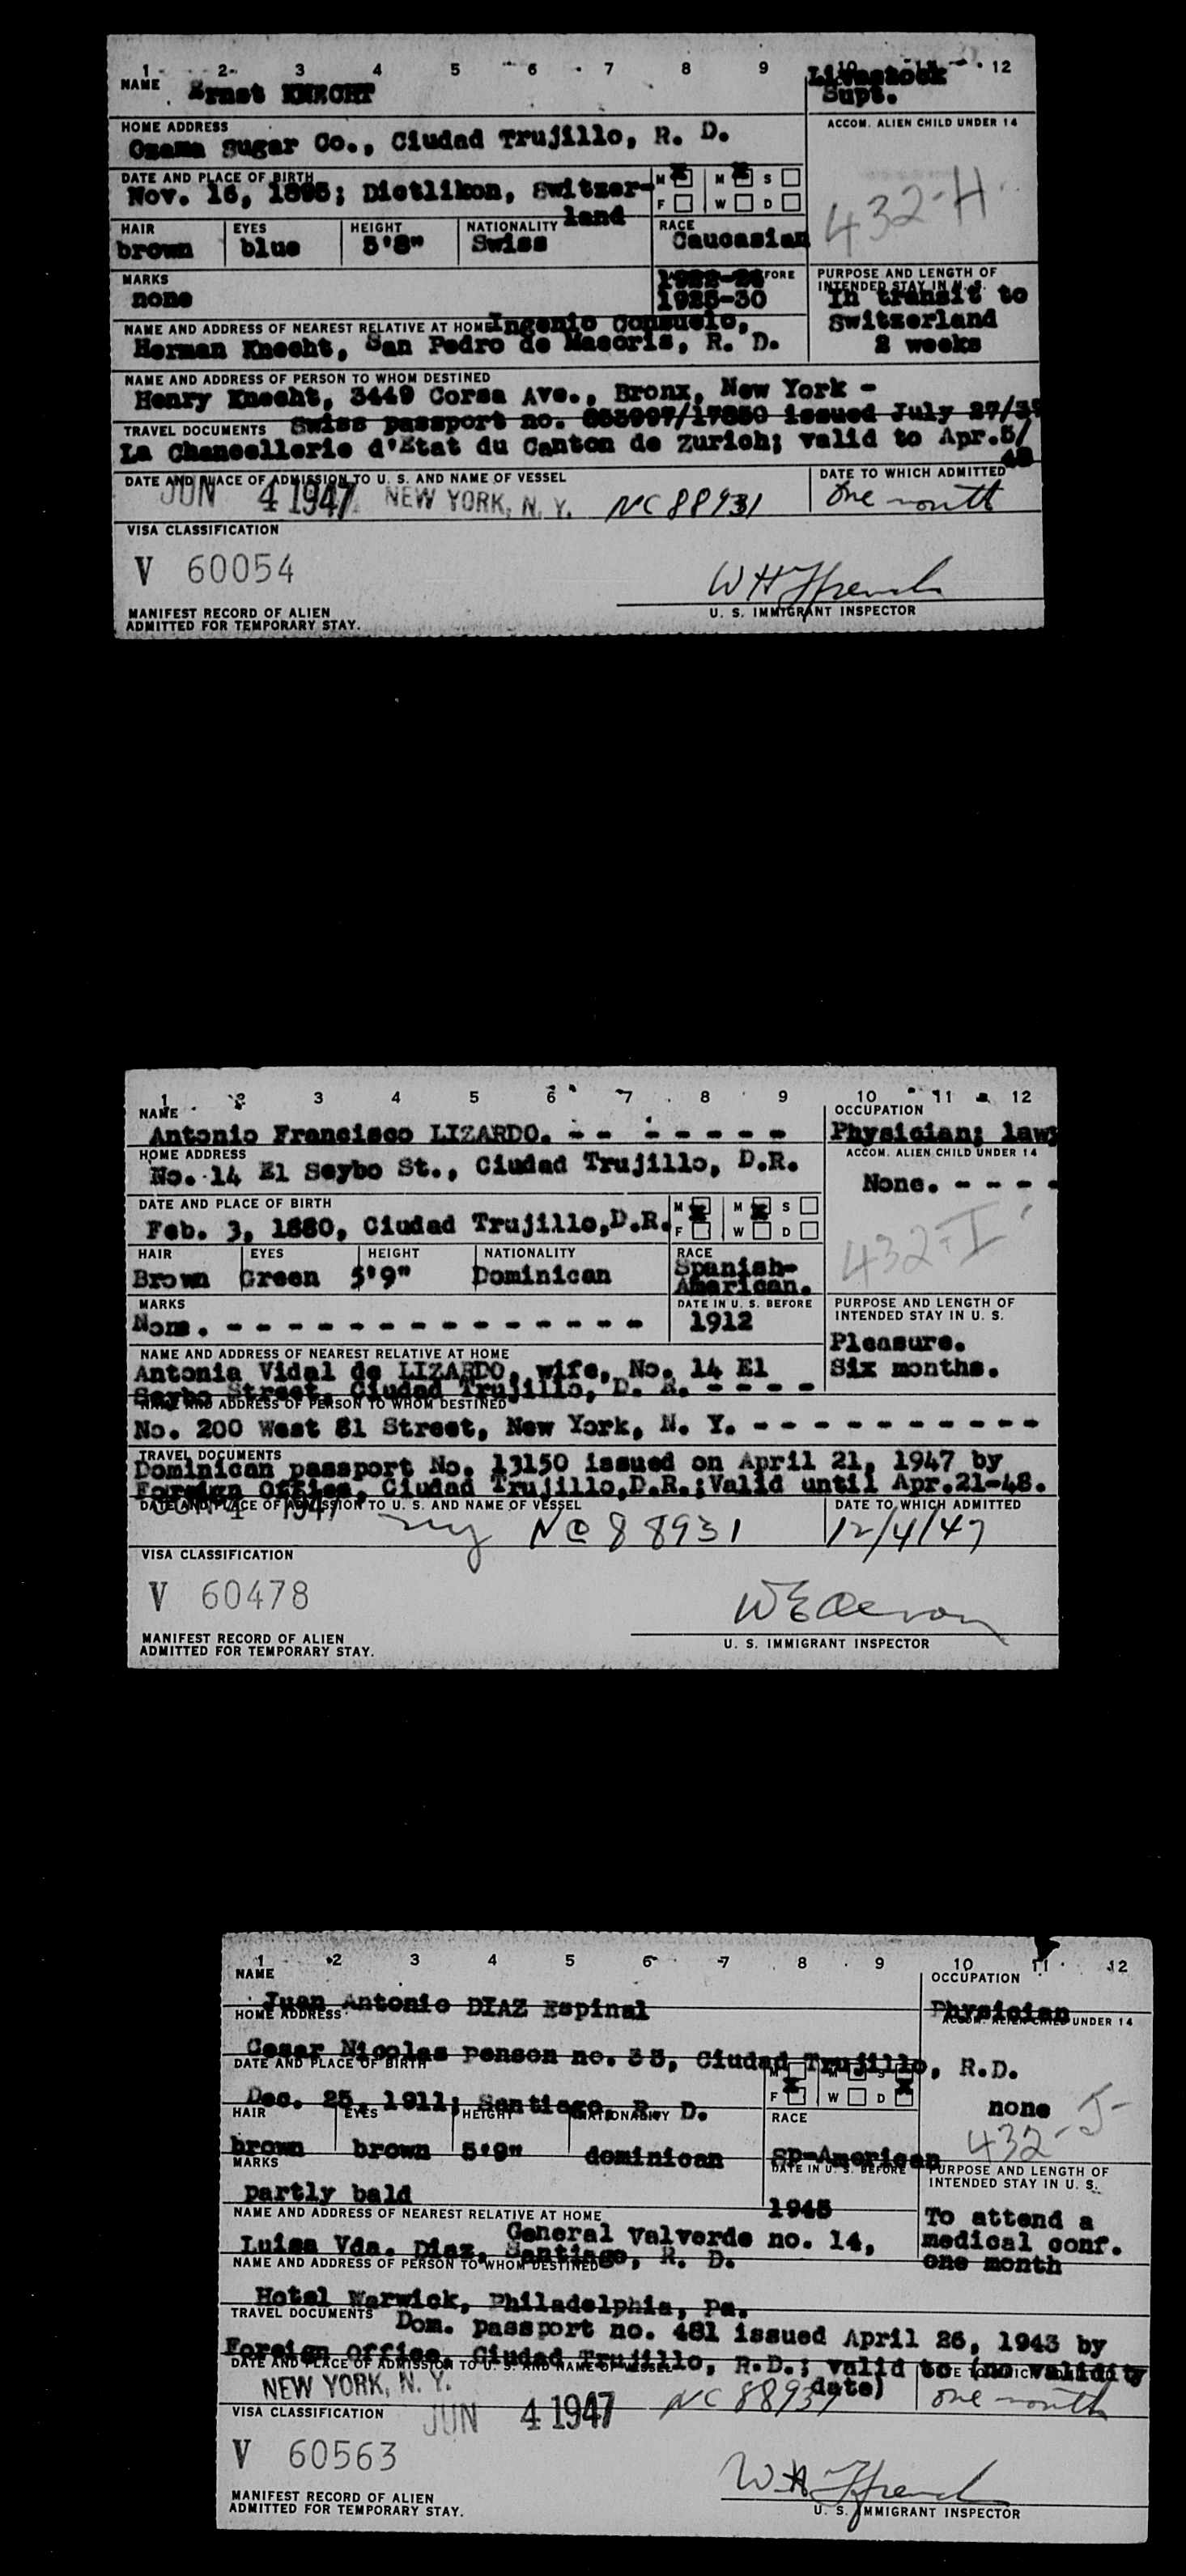 1 2 3 4 5 6 7 8 9 12
NAME Ernst KNECHT
Livestock
Supt.
HOME ADDRESS
Ozama Sugar Co., Ciudad Trujillo, R. D.
ACCOM. ALIEN CHILD UNDER 14
DATE AND PLACE OF BIRTH
Nov. 16, 1895; Dietlikon, Switzer-
land
M X M X S
F W D
432-H
HAIR EYES HEIGHT NATIONALITY RACE
brown blue 5'8" Swiss Caucasian
MARKS
none
FORE
1925-30
PURPOSE AND LENGTH OF
INTENDED STAY IN U. S.
In transit to
Switzerland
2 weeks
NAME AND ADDRESS OF NEAREST RELATIVE AT HOME Ingenio Consuelo,
Herman Knecht, San Pedro de Macoris, R. D.
NAME AND ADDRESS OF PERSON TO WHOM DESTINED
Henry Knecht, 3449 Corsa Ave., Bronx, New York -
TRAVEL DOCUMENTS Swiss passport no. issued July 27/39
La Chancellerie d'Etat du Canton de Zurich; valid to Apr.5/
48
DATE AND PLACE OF ADMISSION TO U. S. AND NAME OF VESSEL
DATE TO WHICH ADMITTED
JUN 4 1947 NEW YORK, N. Y. NC 88931 One month
VISA CLASSIFICATION
V 60054
W H Ffrench
U. S. IMMIGRANT INSPECTOR
MANIFEST RECORD OF ALIEN
ADMITTED FOR TEMPORARY STAY.
1 2 3 4 5 6 7 8 9 10 11 12
NAME OCCUPATION
Antonio Francisco LIZARDO. - - - - - - - -
Physician; lawy
HOME ADDRESS
No. 14 El Seybo St., Ciudad Trujillo, D.R.
ACCOM. ALIEN CHILD UNDER 14
None. - - - -
DATE AND PLACE OF BIRTH
Feb. 3, 1880, Ciudad Trujillo,D.R.
M X M X S
F W D
432-I
HAIR EYES HEIGHT NATIONALITY RACE
Brown Green 5'9" Dominican Spanish-
American.
MARKS
None. - - - - - - - - - - - - - -
DATE IN U. S. BEFORE
1912
PURPOSE AND LENGTH OF
INTENDED STAY IN U. S.
Pleasure.
Six months.
NAME AND ADDRESS OF NEAREST RELATIVE AT HOME
Antonia Vidal de LIZARDO, wife, No. 14 El
Seybo Street, Ciudad Trujillo, D. R. - - - -
NAME AND ADDRESS OF PERSON TO WHOM DESTINED
No. 200 West 81 Street, New York, N. Y. - - - - - - - - - - -
TRAVEL DOCUMENTS
Dominican passport No. 13150 issued on April 21, 1947 by
Foreign Office, Ciudad Trujillo,D.R.;Valid until Apr.21-48.
DATE AND PLACE OF ADMISSION TO U. S. AND NAME OF VESSEL
DATE TO WHICH ADMITTED
JUN 4 1947 ny NC 88931 12/4/47
VISA CLASSIFICATION
V 60478
U. S. IMMIGRANT INSPECTOR
MANIFEST RECORD OF ALIEN
ADMITTED FOR TEMPORARY STAY.
1 2 3 4 5 6 7 8 9 10 11 12
NAME OCCUPATION
Juan Antonio DIAZ Espinal
Physician
HOME ADDRESS
ACCOM. ALIEN CHILD UNDER 14
Cesar Nicolas Penson no. 33, Ciudad Trujillo, R.D.
DATE AND PLACE OF BIRTH
Dec. 25, 1911; Santiago, R. D.
M M S
F X W D X
none
432-J
HAIR EYES HEIGHT NATIONALITY RACE
brown brown 5'9" dominican SP-American
MARKS
partly bald
DATE IN U. S. BEFORE
1945
PURPOSE AND LENGTH OF
INTENDED STAY IN U. S.
To attend a
medical conf.
one month
NAME AND ADDRESS OF NEAREST RELATIVE AT HOME
General Valverde no. 14,
Luisa Vda. Diaz, Santiago, R. D.
NAME AND ADDRESS OF PERSON TO WHOM DESTINED
Hotel Warwick, Philadelphia, Pa.
TRAVEL DOCUMENTS Dom. passport no. 481 issued April 26, 1943 by
Foreign Office, Ciudad Trujillo, R.D.; valid to (no validity
date)
DATE AND PLACE OF ADMISSION TO U. S. AND NAME OF VESSEL
NEW YORK, N. Y. JUN 4 1947 NC 88931 one month
VISA CLASSIFICATION
V 60563
W H Ffrench
U. S. IMMIGRANT INSPECTOR
MANIFEST RECORD OF ALIEN
ADMITTED FOR TEMPORARY STAY.